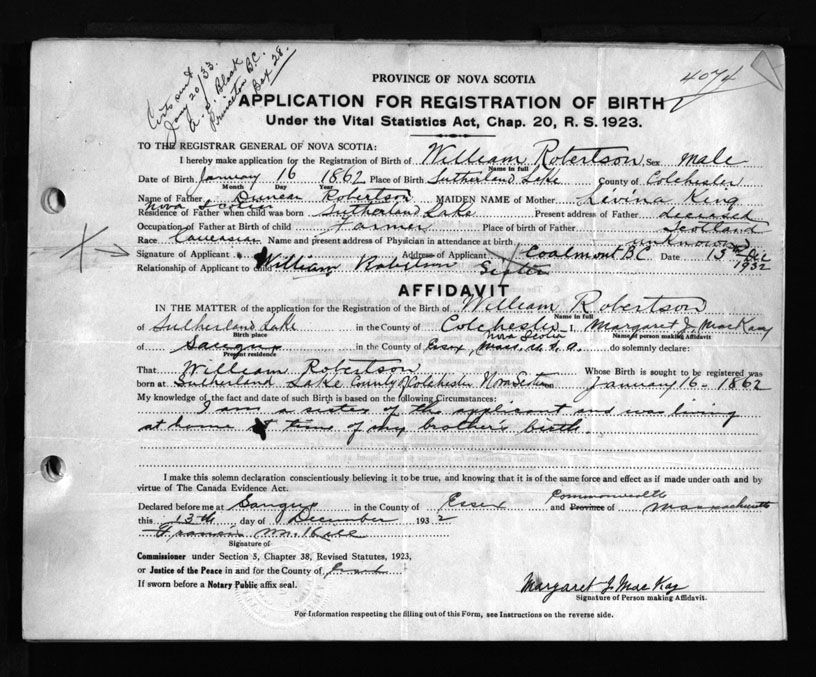 Certs sent
Jany 20/33
Princeton B.C.
Box 28.
4074
PROVINCE OF NOVA SCOTIA
APPLICATION FOR REGISTRATION OF BIRTH
Under the Vital Statistics Act, Chap. 20, R. S. 1923.
TO THE REGISTRAR GENERAL OF NOVA SCOTIA:
I hereby make application for the Registration of Birth of William Robertson Sex male
Name in full
Date of Birth January 16 1862 Place of Birth Sutherland Lake County of Colchester
Month Day Year
Name of Father Duncan Robertson MAIDEN NAME of Mother Levina King
Nova Scotia
Residence of Father when child was born Sutherland Lake Present address of Father deceased
Occupation of Father at Birth of child Farmer Place of birth of Father Scotland
Race Caucasian Name and present address of Physician in attendance at birth unknown
Signature of Applicant William Robertson Address of Applicant Coalmont BC Date 13th Dec 1932
Relationship of Applicant to child Sister
AFFIDAVIT
IN THE MATTER of the application for the Registration of the Birth of William Robertson
Name in full
of Sutherland Lake in the County of Colchester I, Margaret J. MacKay
Birth place Nova Scotia Name of person making Affidavit
of Saugus in the County of Essex, Mass. U.S.A. do solemnly declare:
Present residence
That William Robertson Whose Birth is sought to be registered was
born at Sutherland Lake County of Colchester Nova Scotia on January 16 - 1862
My knowledge of the fact and date of such Birth is based on the following Circumstances:
I am a sister of the applicant and was living
at home at time of my brother's birth
I make this solemn declaration conscientiously believing it to be true, and knowing that it is of the same force and effect as if made under oath and by
virtue of The Canada Evidence Act.
Commonwealth
Declared before me at Saugus in the County of Essex and Province of Massachusetts
this 13th day of December 1932
Francis M. Hill
Signature of
Commissioner under Section 5, Chapter 38, Revised Statutes, 1923,
or Justice of the Peace in and for the County of
If sworn before a Notary Public affix seal.
Margaret J. MacKay
Signature of Person making Affidavit.
For Information respecting the filling out of this Form, see Instructions on the reverse side.